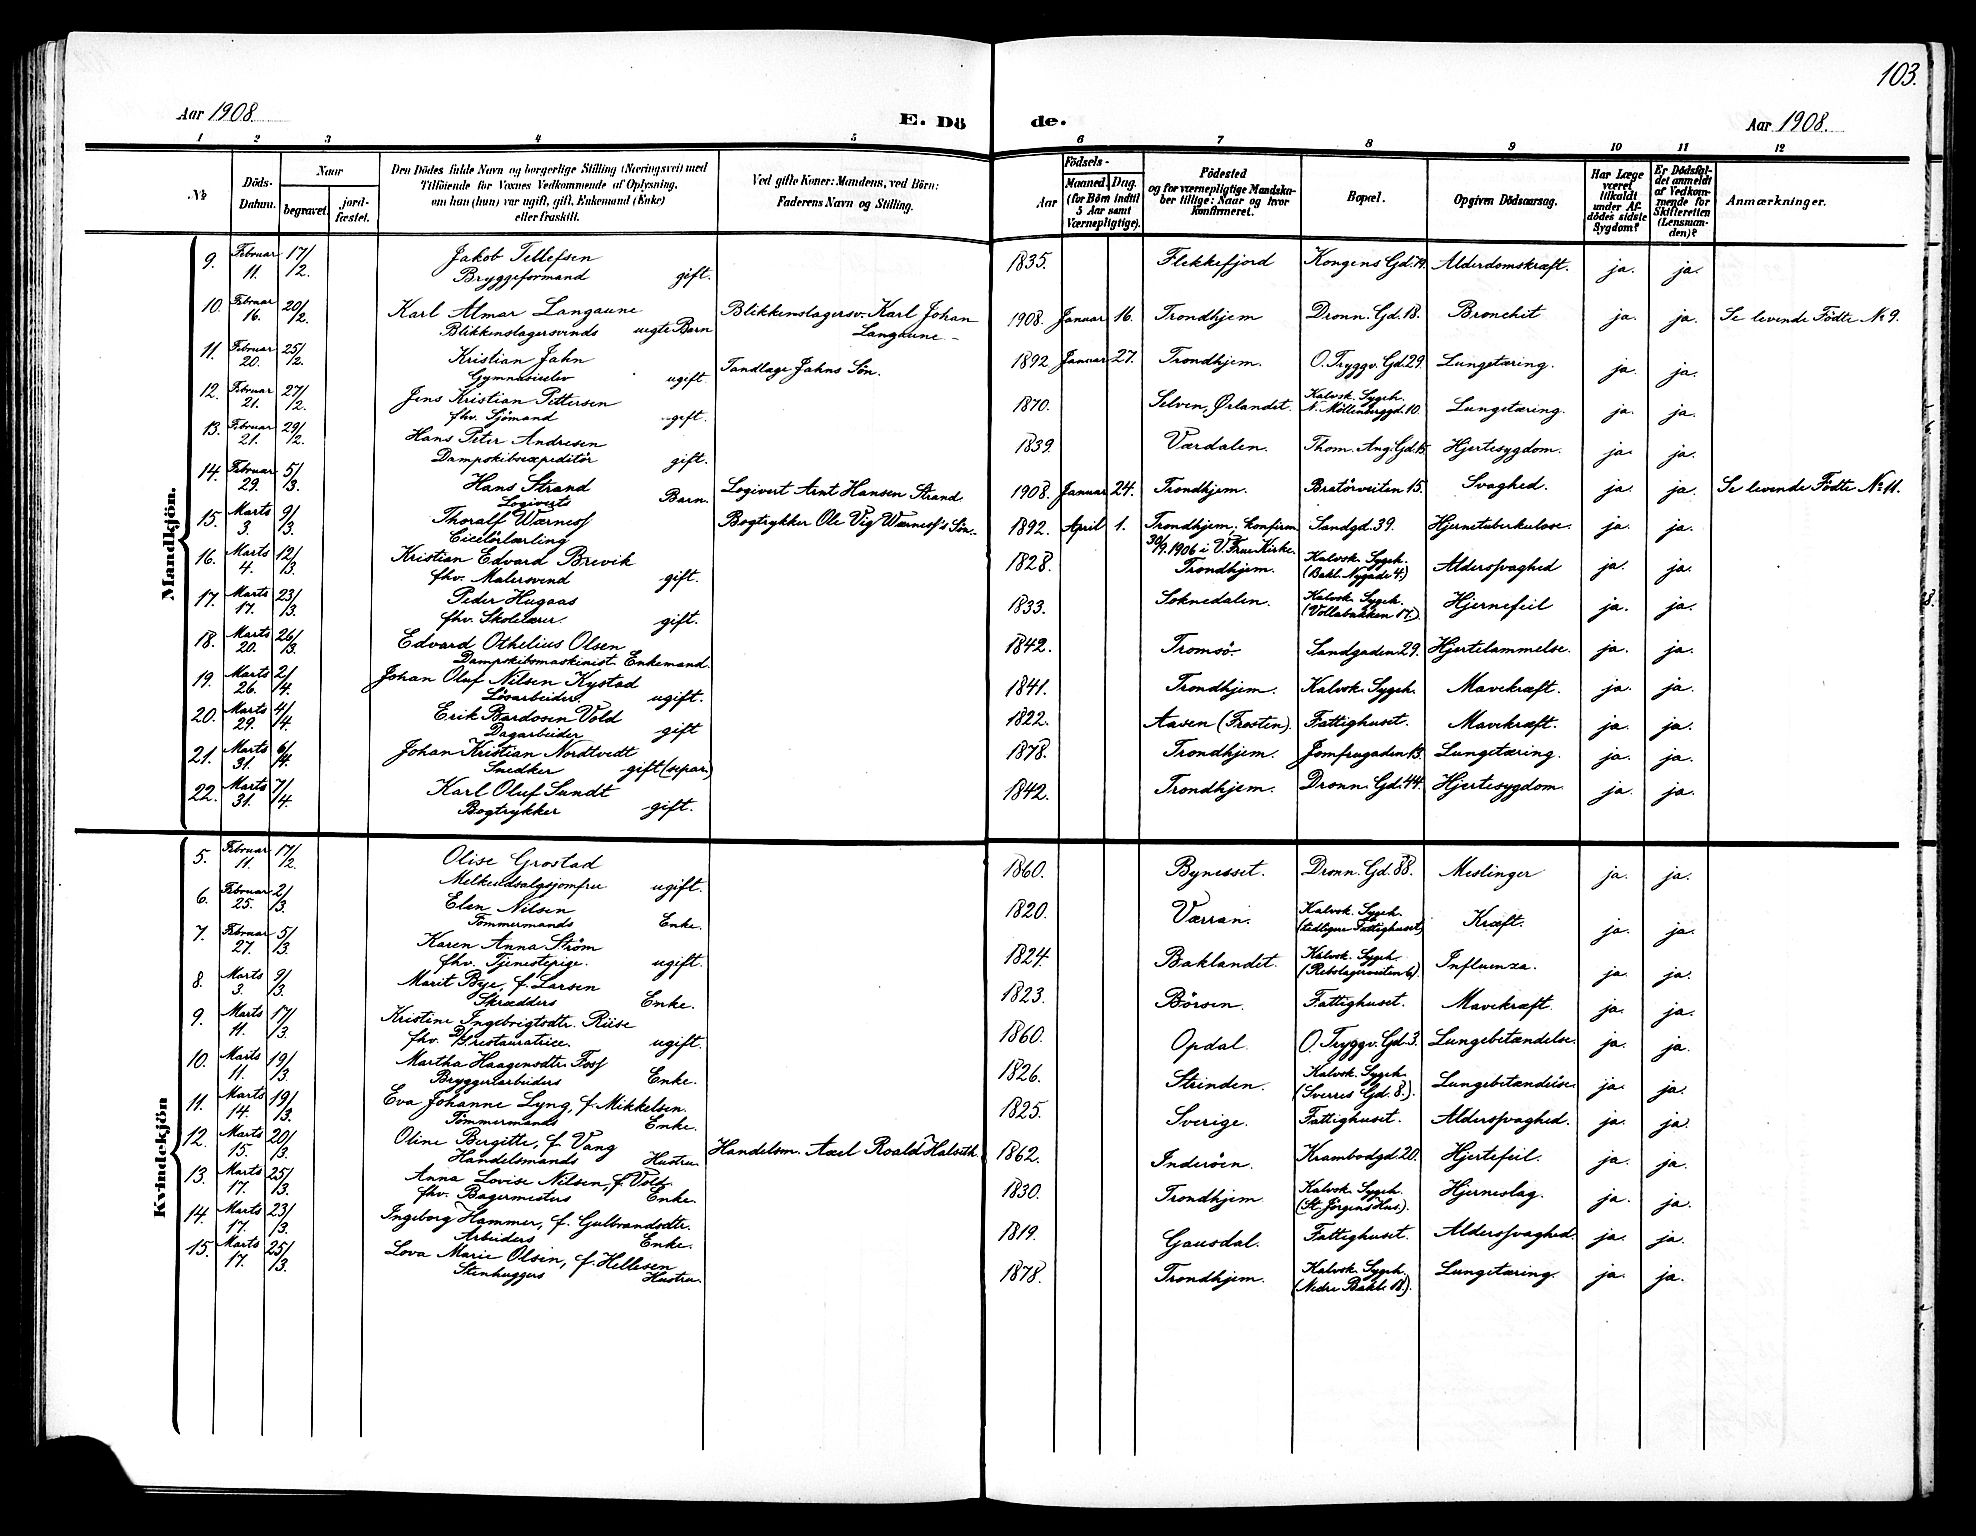 103.
Aar 1908. E. Dö de. Aar 1908.
1 2 3 4 5 6 7 8 9 10 11 12
No
Döds-Datum.
Naar
begravet.
jord-fæstet.
Den Dödes fulde Navn og borgerlige Stilling (Næringsvei) med
Tilföiende for Voxnes Vedkommende af Oplysning,
om han (hun) var ugift, gift, Enkemand (Enke)
eller fraskilt.
Ved gifte Koner: Mandens, ved Börn:
Faderens Navn og Stilling.
Födsels-
Aar
Maaned. Dag.
(for Börn indtil
5 Aar samt
Værnepligtige).
Födested
og for værnepligtige Mandska-
ber tillige: Naar og hvor
konfirmeret.
Bopæl.
Opgiven Dödsaarsag.
Har Læge
været
tilkaldt
under Af-
dödes sidste
Sygdom?
Er Dödsfal-
det anmeldt
af Vedkom-
mende for
Skifteretten
(Lensman-
den)?
Anmærkninger.
Mandkjön.
9. Februar 11. 17/2. Jakob Tellefsen 1835. Flekkefjord Kongens Gd. 79. Alderdomskræft. ja. ja.
Bryggeformand gift.
10. Februar 16. 20/2. Karl Almar Langaune Blikkenslagersv. Karl Johan 1908. Januar 16. Trondhjem Dronn. Gd. 18. Bronchit ja. ja. Se levende Födte No 9.
Blikkenslagersvends uegte Barn Langaune -
11. Februar 20. 25/2. Kristian Jahn Tandlæge Jahns Sön. 1892 Januar 27. Trondhjem. O. Tryggv. Gd. 29. Lungetæring. ja. ja.
Gymnasieelev ugift.
12. Februar 21. 27/2. Jens Kristian Pettersen 1870. Selven, Ørlandet. Kalvsk. Sygeh. N. Möllenberggd. 10. Lungetæring. ja. ja.
fhv. Sjömand gift.
13. Februar 21. 29/2. Hans Peter Andresen 1839. Værdalen. Thom. Ang. Gd. 15. Hjertesygdom. ja. ja.
Dampskibsexpeditör gift.
14. Februar 29. 5/3. Hans Strand Logivert Arnt Hansen Strand 1908. Januar 24. Trondhjem. Bratörveiten 15. Svaghed. ja. ja. Se levende Födte No 11.
Logiverts Barn.
15. Marts 3. 9/3. Thoralf Wærness Bogtrykker Ole Vig Wærness's Sön. 1892. April 1. Trondhjem; konfirm. Sandgd. 39. Hjernetuberkulose. ja. ja.
Ciselörlærling 30/9. 1906 i V. Frue Kirke.
16. Marts 4. 12/3. Kristian Edvard Brevik 1828. Trondhjem. Kalvsk. Sygeh. (Bakl. Nygade 4.) Aldersvaghed ja. ja.
fhv. Malersvend gift.
17. Marts 17. 23/3. Peder Hugaas 1833. Soknedalen. Kalvsk. Sygeh. (Vollabakken 17.) Hjernefeil ja. ja.
fhv. Skolelærer. gift.
18. Marts 20. 26/3. Edvard Othelius Olsen 1842. Tromsö. Sandgaden 29. Hjertelammelse. ja. ja.
Dampskibsmaskinist. Enkemand.
19. Marts 26. 2/4. Johan Oluf Nilsen Kystad 1841. Trondhjem. Kalvsk. Sygeh. Mavekræft. ja. ja.
Lösarbeider. ugift.
20. Marts 29. 4/4. Erik Bardosen Vold 1822. Aasen (Frosten). Fattighuset. Mavekræft. ja. ja.
Dagarbeider gift
21. Marts 31. 6/4. Johan Kristian Nordtvedt 1878. Trondhjem. Jomfrugaden 13. Lungetæring. ja. ja.
Snedker gift (separ.)
22. Marts 31. 7/4. Karl Oluf Sundt 1842. Trondhjem. Dronn. Gd. 44. Hjertesygdom. ja. ja.
Bogtrykker gift.
Kvindekjön
5. Februar 11. 17/2. Olise Grostad 1860. Bynesset. Dronn. Gd. 88. Meslinger ja. ja.
Melkeudsalgsjomfru ugift.
6. Februar 25. 2/3. Elen Nilsen 1820. Værran. Kalvsk. Sygeh. (tidligere Fattighuset) Kræft. ja. ja.
Tömmermands Enke.
7. Februar 27. 5/3. Karen Anna Ström 1824. Baklandet. Kalvsk. Sygeh. (Rebslagerveiten 6). Influenza. ja. ja.
fhv. Tjenestepige. ugift.
8. Marts 3. 9/3. Marit Bye, f. Larsen 1823. Börsen. Fattighuset. Mavekræft ja. ja.
Skrædders Enke.
9. Marts 11. 17/3. Kristine Ingebrigtsdtr. Riise 1860. Opdal. O. Tryggv. Gd. 3. Lungebetændelse. ja. ja.
fhv. D/S. restauratrice. ugift.
10. Marts 11. 19/3. Martha Haagensdtr. Foss 1826. Strinden. Kalvsk. Sygeh. (Sverres Gd. 8.). Lungebetændelse. ja. ja.
Bryggeriarbeiders Enke.
11. Marts 14. 19/3. Eva Johanne Lyng, f. Mikkelsen. 1825. Sverige. Fattighuset. Aldersvaghed. ja. ja.
Tömmermands Enke.
12. Marts 15. 20/3. Oline Bergitte, f. Vang Handelsm. Axel Roald Halseth. 1862. Inderöen. Krambodgd. 20. Hjertefeil. ja. ja.
Handelsmands Hustru
13. Marts 17. 25/3. Anna Lovise Nilsen, f. Vold. 1830. Trondhjem Kalvsk. Sygeh. (St. Jörgens Hus.) Hjerneslag. ja. ja.
fhv. Bagermesters Enke.
14. Marts 17. 23/3. Ingeborg Hammer, f. Gulbrandsdtr. 1819. Gausdal. Fattighuset. Aldersvaghed. ja. ja.
Arbeiders Enke.
15. Marts 17. 25/3. Lova Marie Olsen, f. Hellesen 1878. Trondhjem Kalvsk. Sygeh. (Nedre Bakl. 18.). Lungetæring. ja. ja.
Stenhuggers Hustru.